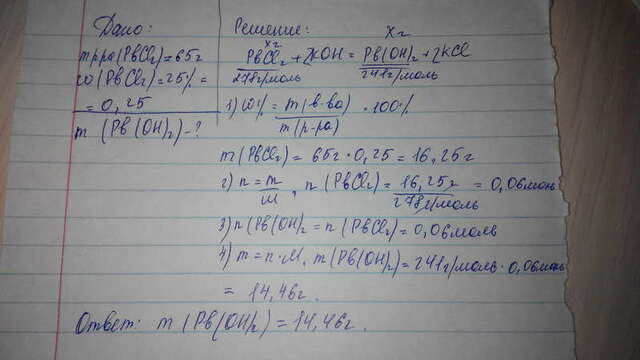 Дано:
mр-ра(PbCl₂)=65г
ω(PbCl₂)=25%=
=0,25
m (Pb(OH)₂)-?
Решение:
xг xг
PbCl₂+2KOH=Pb(OH)₂+2KCl
278г/моль 241г/моль
1) ω%=m(в-ва)/m(р-ра)·100%
m(PbCl₂)=65г·0,25=16,25г
2) n=m/M, n(PbCl₂)=16,25г/278г/моль=0,06моль
3) n(Pb(OH)₂=n(PbCl₂)=0,06моль
4) m=n·M, m(Pb(OH)₂)=241г/моль·0,06моль
=14,46г.
Ответ: m(Pb(OH)₂)=14,46г.